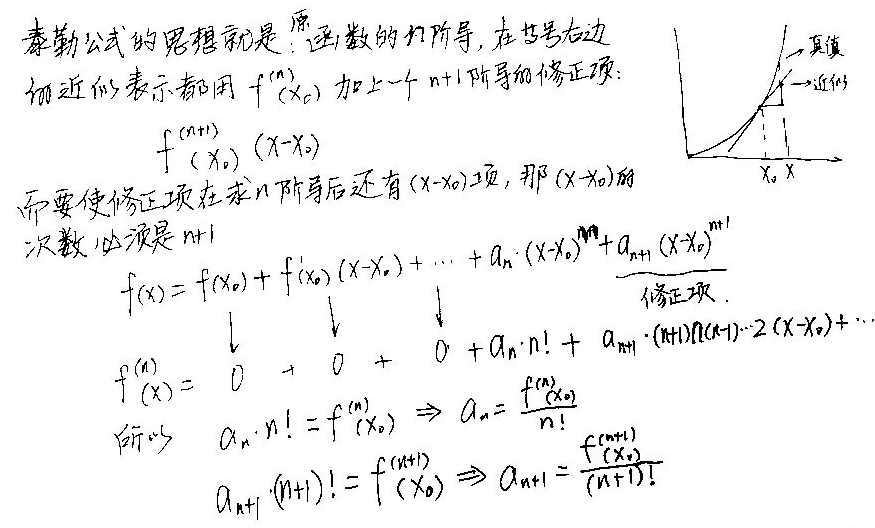 泰勒公式的思想就是:原函数的n阶导,在等号右边
的近似表示都用 f⁽ⁿ⁾(x₀) 加上一个 n+1阶导的修正项:
真值
近似
f⁽ⁿ⁺¹⁾(x₀)(x-x₀)
x₀ x
而要使修正项在求n阶导后还有(x-x₀)项,那(x-x₀)的
次数必须是n+1
f(x) = f(x₀) + f'(x₀)(x-x₀) + ⋯ + aₙ·(x-x₀)ⁿ + aₙ₊₁(x-x₀)ⁿ⁺¹
修正项.
f⁽ⁿ⁾(x) = 0 + 0 + 0 + aₙ·n! + aₙ₊₁·(n+1)n(n-1)⋯2(x-x₀)+⋯
所以 aₙ·n! = f⁽ⁿ⁾(x₀) ⇒ aₙ = f⁽ⁿ⁾(x₀)/n!
aₙ₊₁·(n+1)! = f⁽ⁿ⁺¹⁾(x₀) ⇒ aₙ₊₁ = f⁽ⁿ⁺¹⁾(x₀)/(n+1)!